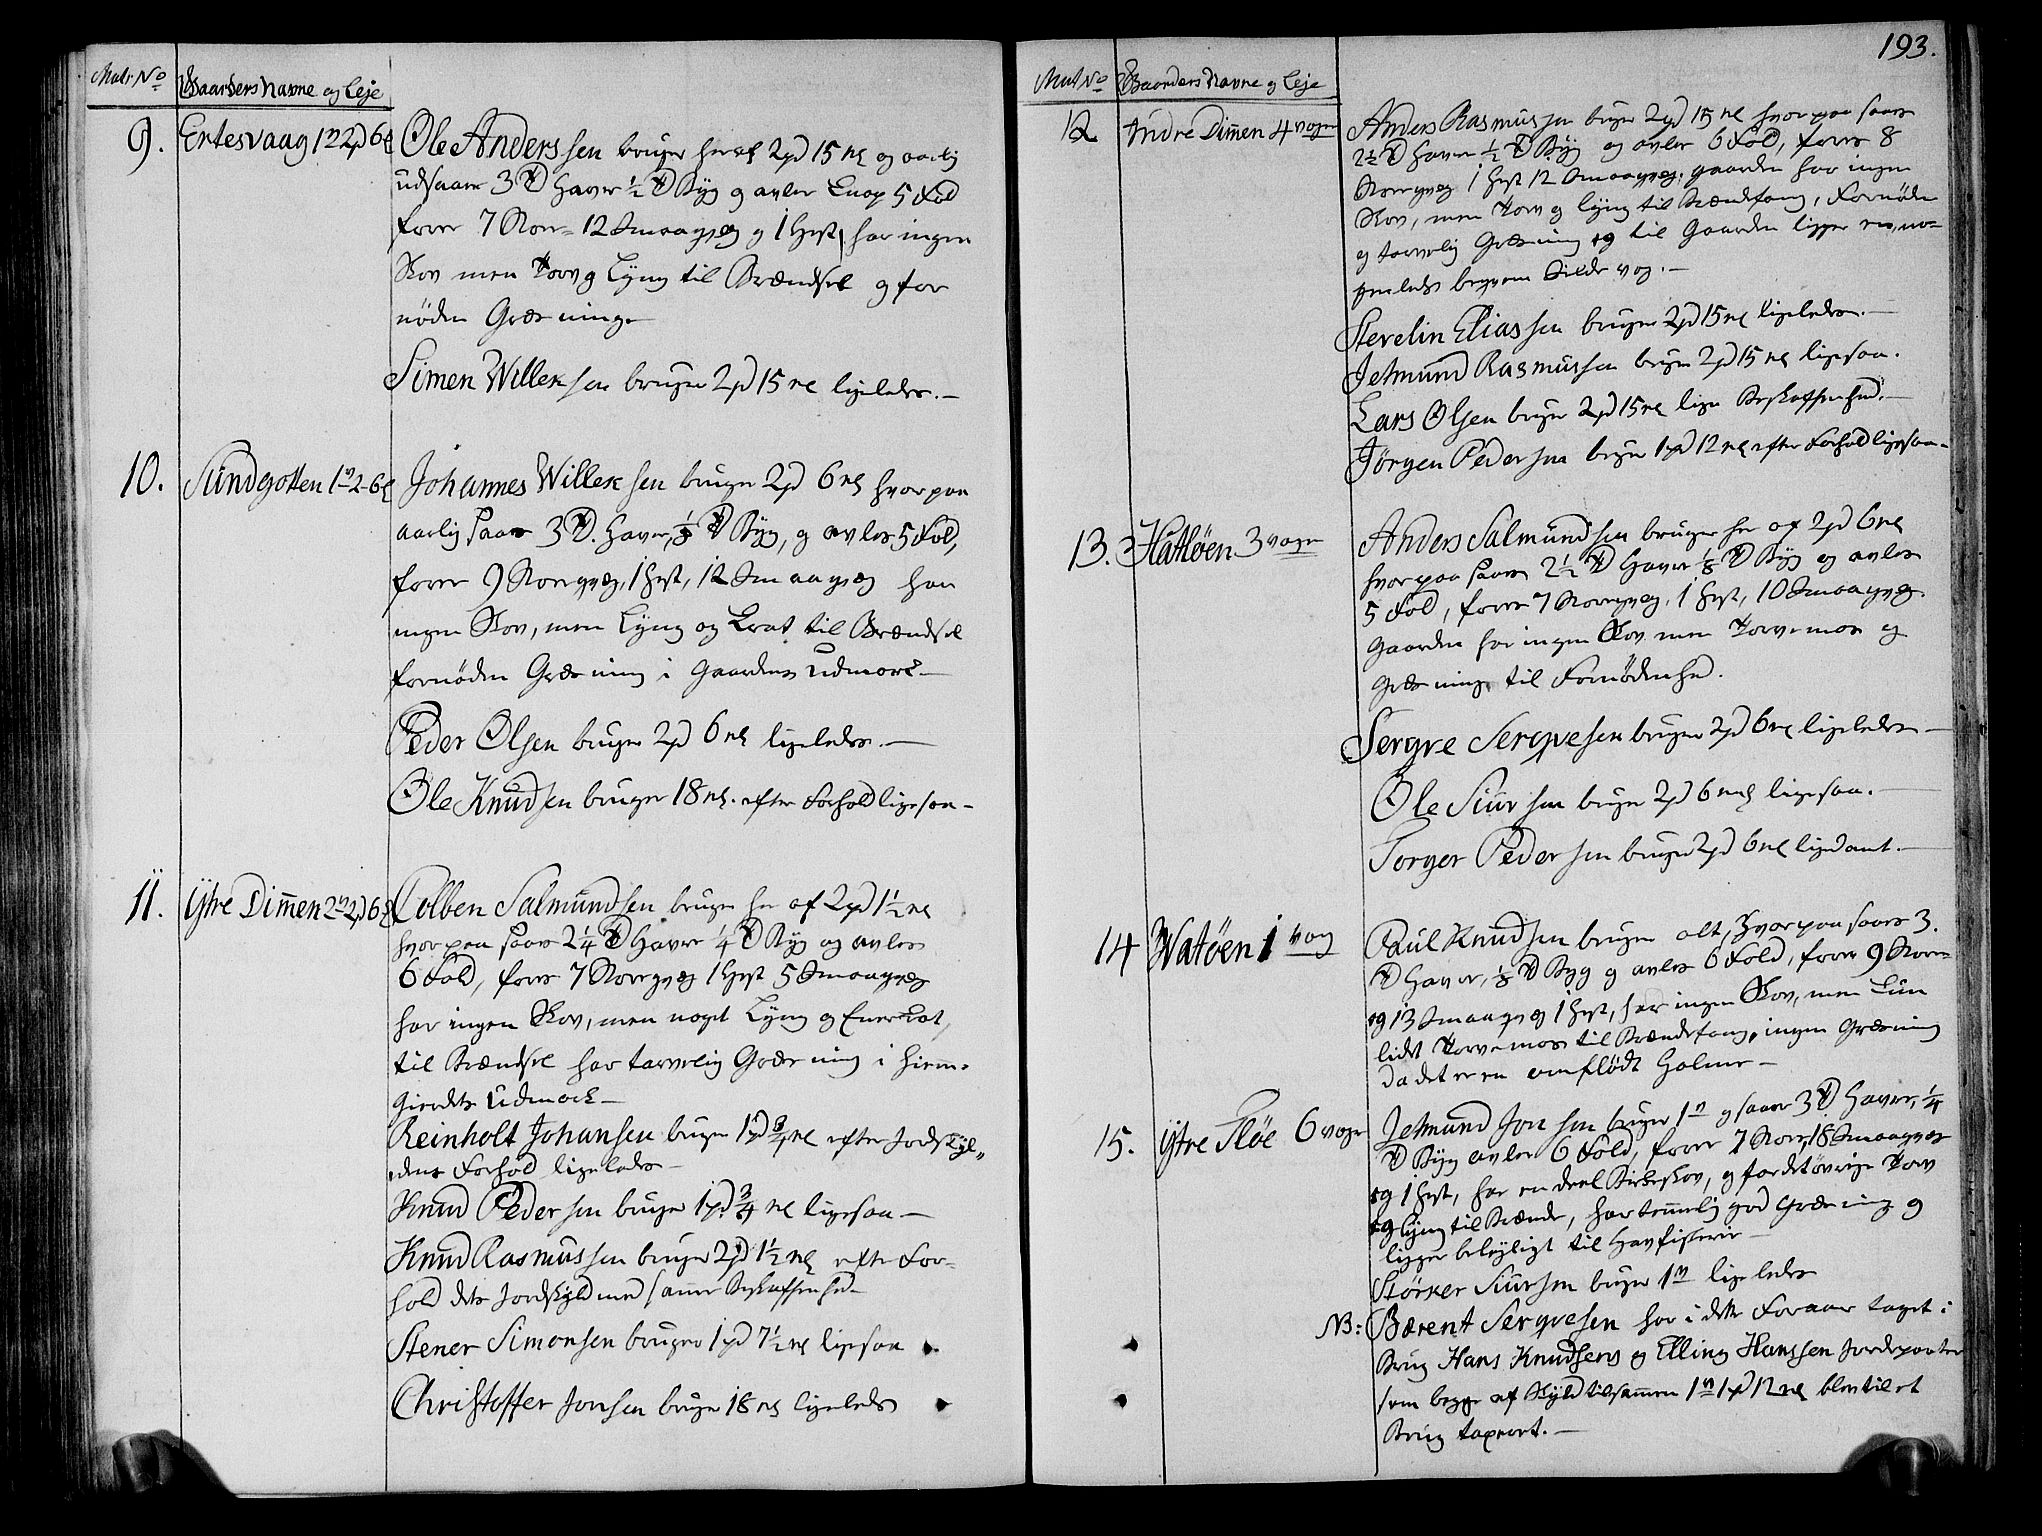 Matr No
Gaarders Navne og Leje
9.
Ertesvaag 1 2 6
Ole Anderssen bruger heraf 2 pd 15 mk og aarlig
udsaaer 3 Td Haver ½ Td Byg og avler knap 5 Fold
foer 7 Stor- 12 Smaaqvæg og 1 Hest, har ingen
Skov men Torv og Lyng til Brændsel og for
nøden Græsning
Simen Willeksen bruger 2 pd 15 mk ligeledes. —
10.
Sundgotten 1 2 - 6
Johannes Willeksen bruger 2 pd 6 mk hvorpaa
aarlig saaes 3 Td. Haver, ⅛ Td Byg, og avles 5 Fold,
foer 9 Storqvæg, 1 Hest, 12 Smaaqvæg har
ingen Skov, men Lyng og Krat til Brændsel
fornøden Græsning i Gaardens Udmark —
Peder Olsen bruger 2 pd 6 mk ligeledes. —
Ole Knudsen bruger 18 mk. efter Forhold ligesaa —
11.
Ytre Dimmen 2 2 6
Colben Salmundsen bruger her af 2 pd 1½ mk
hvorpaa saaes 2¼ Td Haver ¼ Td Byg og avles
6 Fold, foer 7 Storqvæg 1 Hest 5 Smaaqvæg
har ingen Skov, men noget Lyng og Enerkrat,
til Brændsel har tarvelig Græsning i Hiem-
gierdets Udmark —
Reinholt Johansen bruger 1 pd ¾ mk efter Jordskyl-
dens Forhold ligeledes —
Knud Pedersen bruger 1 pd ¾ mk ligesaa —
Knud Rasmussen bruger 2 pd 1½ mk efter For-
hold dets Jordskyld med samme Beskaffenhed —
Stener Simonsen bruger 1 pd 7½ mk ligesaa
Christoffer Jonsen bruger 18 mk ligeledes
193.
Mat No
Gaarders Navne og Leje
12
Indre Dimmen 4 voger
Anders Rasmussen bruger 2 pd 15 mk hvorpaa saaes
2½ Td Haver ½ Td Byg og avles 6 Fold, foer 8
Storqvæg 1 Hest 12 Smaaqvæg, gaarden har ingen
Skov, men Torv og Lyng til Brændefang, Fornøden
og tarvelig Græsning og til Gaarden ligger en, no-
genledes beqvem Silde vog. —
Sterelin Eliassen bruger 2 pd 15 mk ligeledes. —
Jetmund Rasmussen bruger 2 pd 15 mk ligesaa.
Lars Olsen bruger 2 pd 15 mk lige Beskaffenhed. —
Jørgen Pedersen bruger 1 pd 12 mk efter Forhold ligesaa —
13.
Hatløen 3 voger
Anders Salmundsen bruger her af 2 pd 6 mk
hvorpaa saaes 2½ Td Haver ⅛ Td Byg og avles
5 Fold, foer 7 Storqvæg, 1 Hest, 10 Smaaqvæg
Gaarden har ingen Skov men Torvemose og
Græsning, til Fornødenhed.
Sergve Sergvesen bruger 2 pd 6 mk ligeledes —
Ole Siursen bruger 2 pd 6 mk ligesaa. —
Torger Pedersen bruger 2 pd 6 mk ligedant. —
14
Watøen 1 vog
Paul Knudsen bruger alt, hvorpaa saaes 3.
Td Haver, ⅛ Td Byg og avles 6 Fold, foer 9 Stor-
og 13 Smaaqvæg 1 Hest, har ingen Skov, men kun
lidt Torvemose til Brændefang, ingen Græsning
da det er en omflødt Holme —
15.
Ytre Fløe 6 voger
Jetmund Jonsen bruger 1 og saaer 3 Td Haver, ¼
Td Byg avler 6 Fold, foer 7 Stor, 18 Smaaqvæg
og 1 Hest, har en deel Birkeskov, og for det øvrige Torv
og Lyng til Brænde, har temmelig god Græsning og
ligger beleyligt til Havfiskerie —
Størker Siursen bruger 1 ligeledes
NB: Bærent Sergvesen har i dette Foraar taget i
Brug Hans Knudsens og Elling Hanssen Jordeparter
som begge af Skyld tilsammen 1 1 pd 12 mk blev til et
Brug taxeert. —